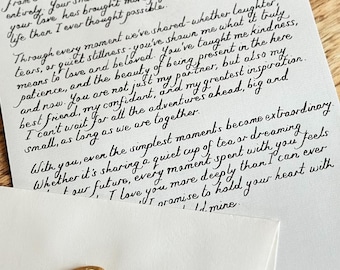 entirely. Your
your love has brought
life than I ever thought possible.
Through every moment we've shared - whether laughter,
tears, or quiet stillness - you've shown me what it truly
means to love and beloved. You've taught me kindness,
patience, and the beauty of being present in the here
and now. You are not just my partner, but also my
best friend, my confidant, and my greatest inspiration.
I can't wait for all the adventures ahead, big and
small, as long as we are together.
With you, even the simplest moments become extraordinary
Whether it's sharing a quiet cup of tea or dreaming
our future, every moment spent with you feels
I love you more deeply than I can ever
I promise to hold your heart with
hold mine.